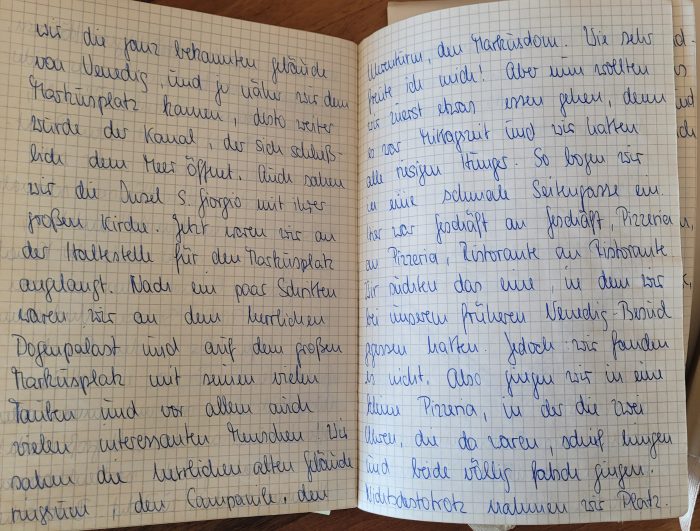 wir die ganz bekannten Gebäude
von Venedig, und je näher wir dem
Markusplatz kamen, desto weiter
würde der Kanal, der sich schließ-
lich dem Meer öffnet. Auch sahen
wir die Insel S. Giorgio mit ihrer
großen Kirche. Jetzt waren wir an
der Haltestelle für den Markusplatz
angelangt. Nach ein paar Schritten
waren wir an dem herrlichen
Dogenpalast und auf dem großen
Markusplatz mit seinen vielen
Tauben und vor allem auch
vielen interessanten Menschen! Wir
sahen die herrlichen alten Gebäude
ringsum, den Campanile, den
Uhrenturm, den Markusdom. Wie sehr
freute ich mich! Aber nun wollten
wir zuerst etwas essen gehen, denn
es war Mittagszeit und wir hatten
alle riesigen Hunger. So bogen wir
in eine schmale Seitengasse ein.
Hier war Geschäft an Geschäft, Pizzeria
an Pizzeria, Ristorante an Ristorante.
Wir suchten das eine, in dem wir
bei unserem früheren Venedig-Besuch
gegessen hatten. Jedoch wir fanden
es nicht. Also gingen wir in eine
kleine Pizzeria, in der die zwei
Uhren, die da waren, schief hingen
und beide völlig falsch gingen.
Nichtsdestotrotz nahmen wir Platz.